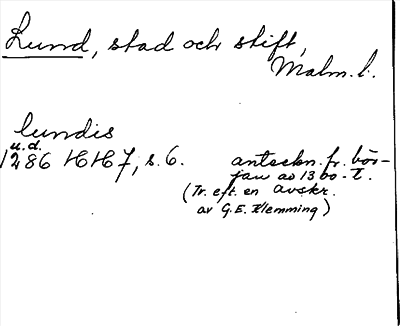 Lund, stad och stift,
Malm. l.
lundis
u.d.
1286 HH 7, s. 6. anteckn. fr. bör-
jan av 1300-t.
(Tr. eft. en avskr.
av G.E. Klemming)